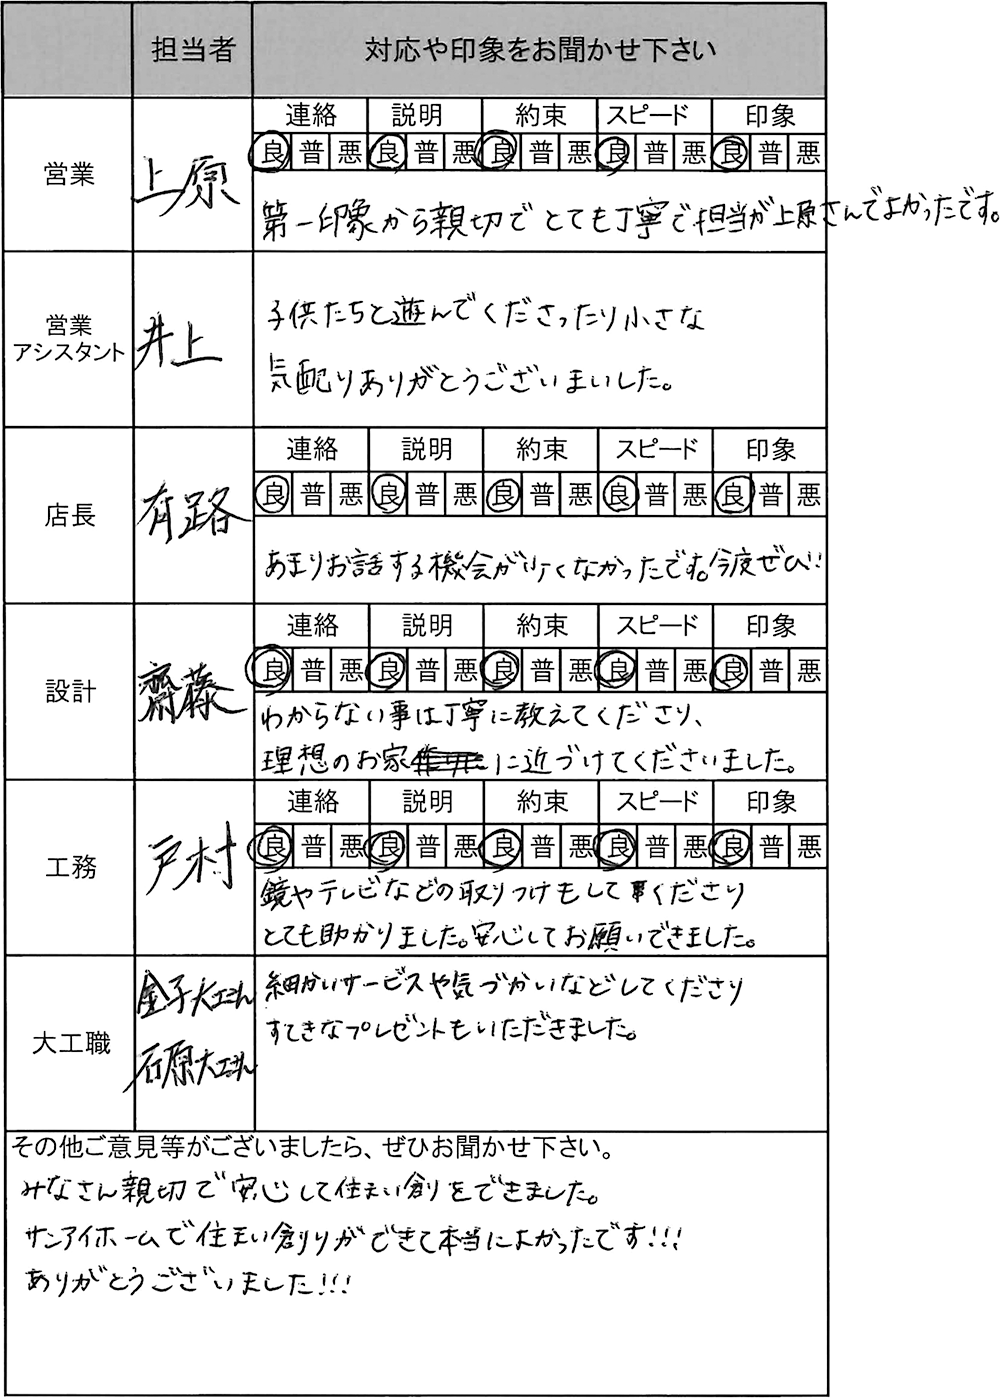 担当者 対応や印象をお聞かせ下さい
連絡 説明 約束 スピード 印象
良 普 悪 良 普 悪 良 普 悪 良 普 悪 良 普 悪
営業 上原
第一印象から親切でとても丁寧で担当が上原さんでよかったです。
営業
アシスタント
井上
子供たちと遊んでくださったり小さな
気配りありがとうございまいした。
連絡 説明 約束 スピード 印象
良 普 悪 良 普 悪 良 普 悪 良 普 悪 良 普 悪
店長 有路
あまりお話する機会が少くなかったです。今度ぜひ!!
連絡 説明 約束 スピード 印象
良 普 悪 良 普 悪 良 普 悪 良 普 悪 良 普 悪
設計 齋藤
わからない事は丁寧に教えてくださり、
理想のお家に近づけてくださいました。
連絡 説明 約束 スピード 印象
良 普 悪 良 普 悪 良 普 悪 良 普 悪 良 普 悪
工務 戸村
鏡やテレビなどの取りつけもして くださり
とても助かりました。安心してお願いできました。
大工職
金子大工さん
石原大工さん
細かいサービスや気づかいなどしてくださり
すてきなプレゼントもいただきました。
その他ご意見等がございましたら、ぜひお聞かせ下さい。
みなさん親切で安心して住まい創をできました。
サンアイホームで住まい創りができて本当によかったです!!!
ありがとうございました!!!